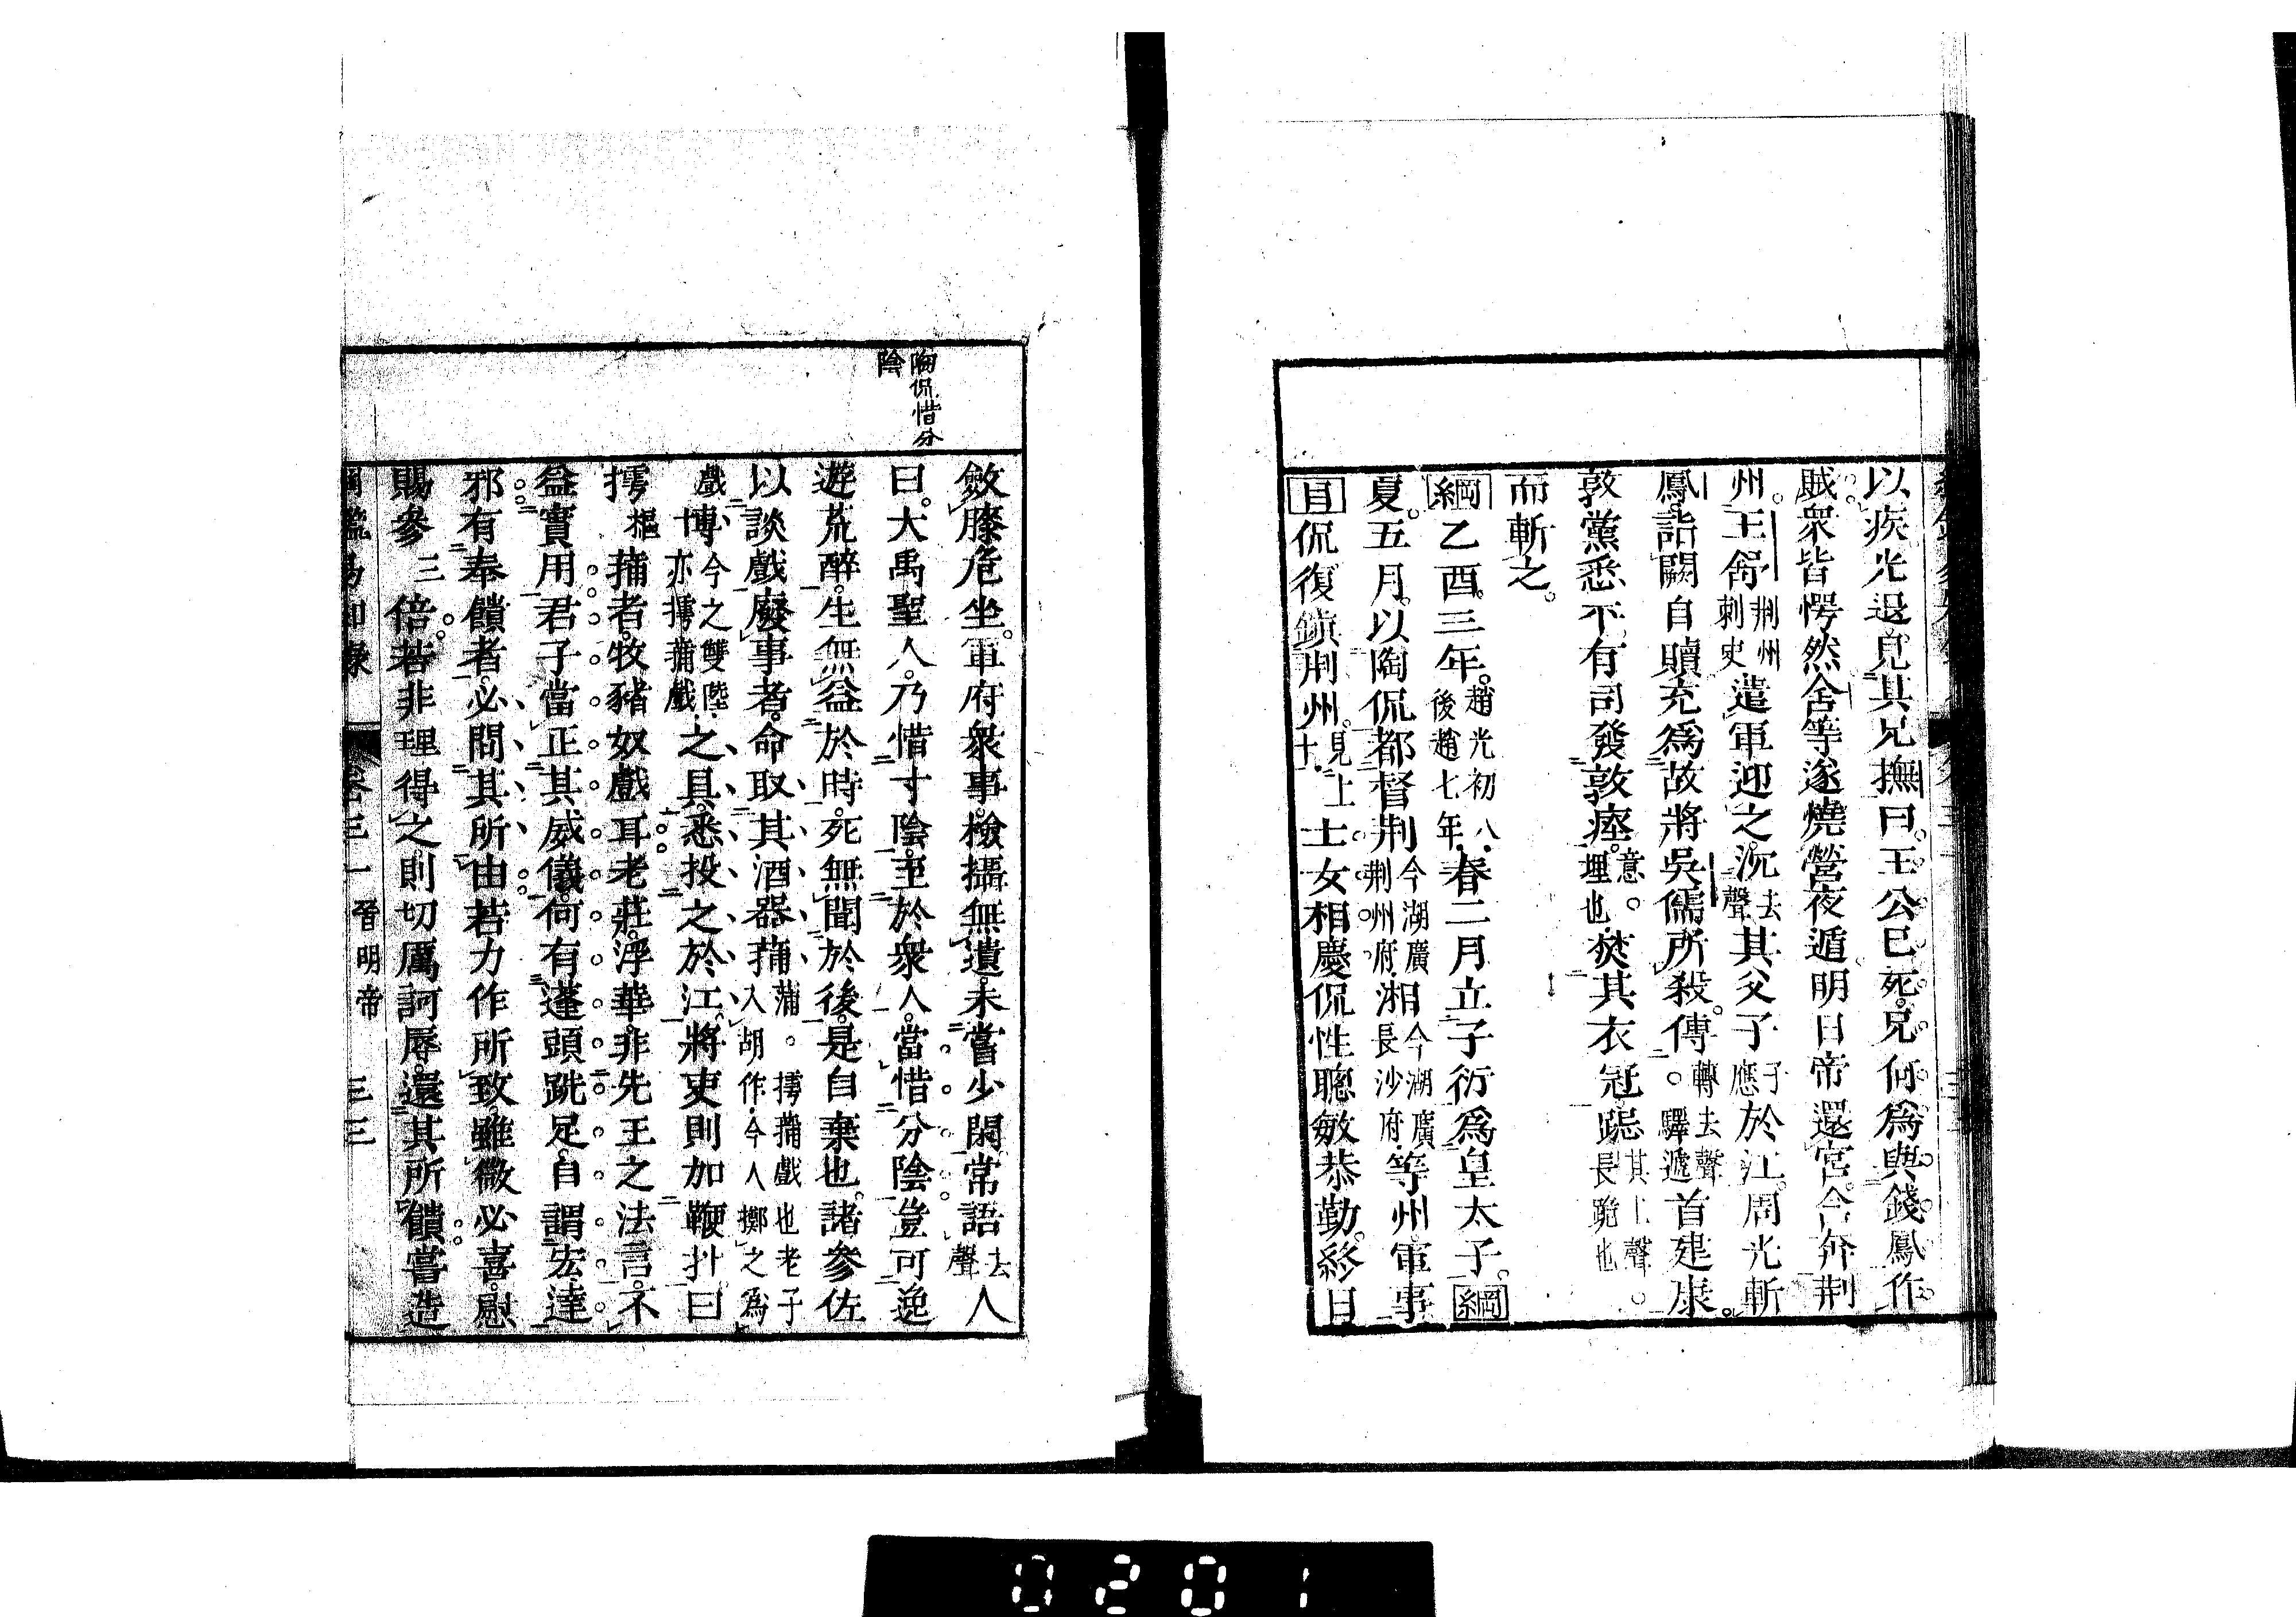 以疾光退見其兄撫曰王公已死兄何爲與錢鳳作
賊衆皆愕然含等遂燒營夜遁明日帝還宮含奔荊
州王舒荊州刺史遣軍迎之沉去聲其父子於江周光斬
鳳詣闕自贖充爲故將吳儒所殺傳轉去聲。驛遞首建康
敦黨悉平有司發敦瘞意。埋也焚其衣冠跽其上聲。長跪也
而斬之。
綱乙酉三年。趙光初八後趙七年春二月立子衍爲皇太子。綱
夏五月以陶侃都督荊今湖廣荊州府湘今湖廣長沙府等州軍事
目侃復鎭荊州見上十士女相慶侃性聰敏恭勤終日
陶侃惜分陰
斂膝危坐軍府衆事檢攝無遺未嘗少閑常語去聲人
曰大禹聖人乃惜寸陰至於衆人當惜分陰豈可逸
遊荒醉生無益於時死無聞於後是自棄也諸參佐
以談戲廢事者命取其酒器蒱蒲。摴蒱戲也老子入胡作今人擲之爲
戲博今之雙陸亦摴蒱戲之具悉投之於江將吏則加鞭扑曰
摴樞蒱者牧豬奴戲耳老莊浮華非先王之法言不
益實用君子當正其威儀何有蓬頭跣足自謂宏達
邪有奉饋者必問其所由若力作所致雖微必喜慰
賜參三倍若非理得之則切厲訶辱還其所饋嘗造
綱鑑易知錄 卷三一 晉明帝 三三